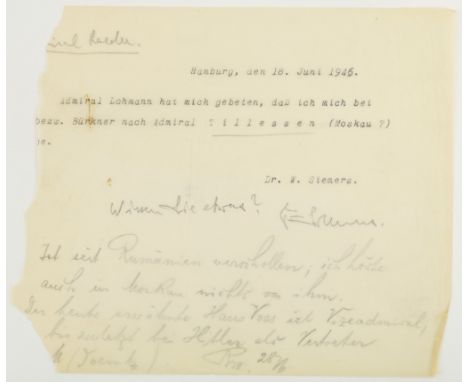 iral Raeder.
Hamburg, den 18. Juni 1946.
Admiral Lohmann hat mich gebeten, daß ich mich bei
bezw. Bürkner nach Admiral T i l l e s s e n (Moskau ?)
be.
Dr. W. Siemers.
Wissen Sie etwas?
Ist seit Rumänien verschollen; ich hörte
auch in Moskau nichts von ihm.
Der heute erwähnte Hans Voss ist Vizeadmiral,
bis zuletzt bei Hitler als Vertreter
28/6